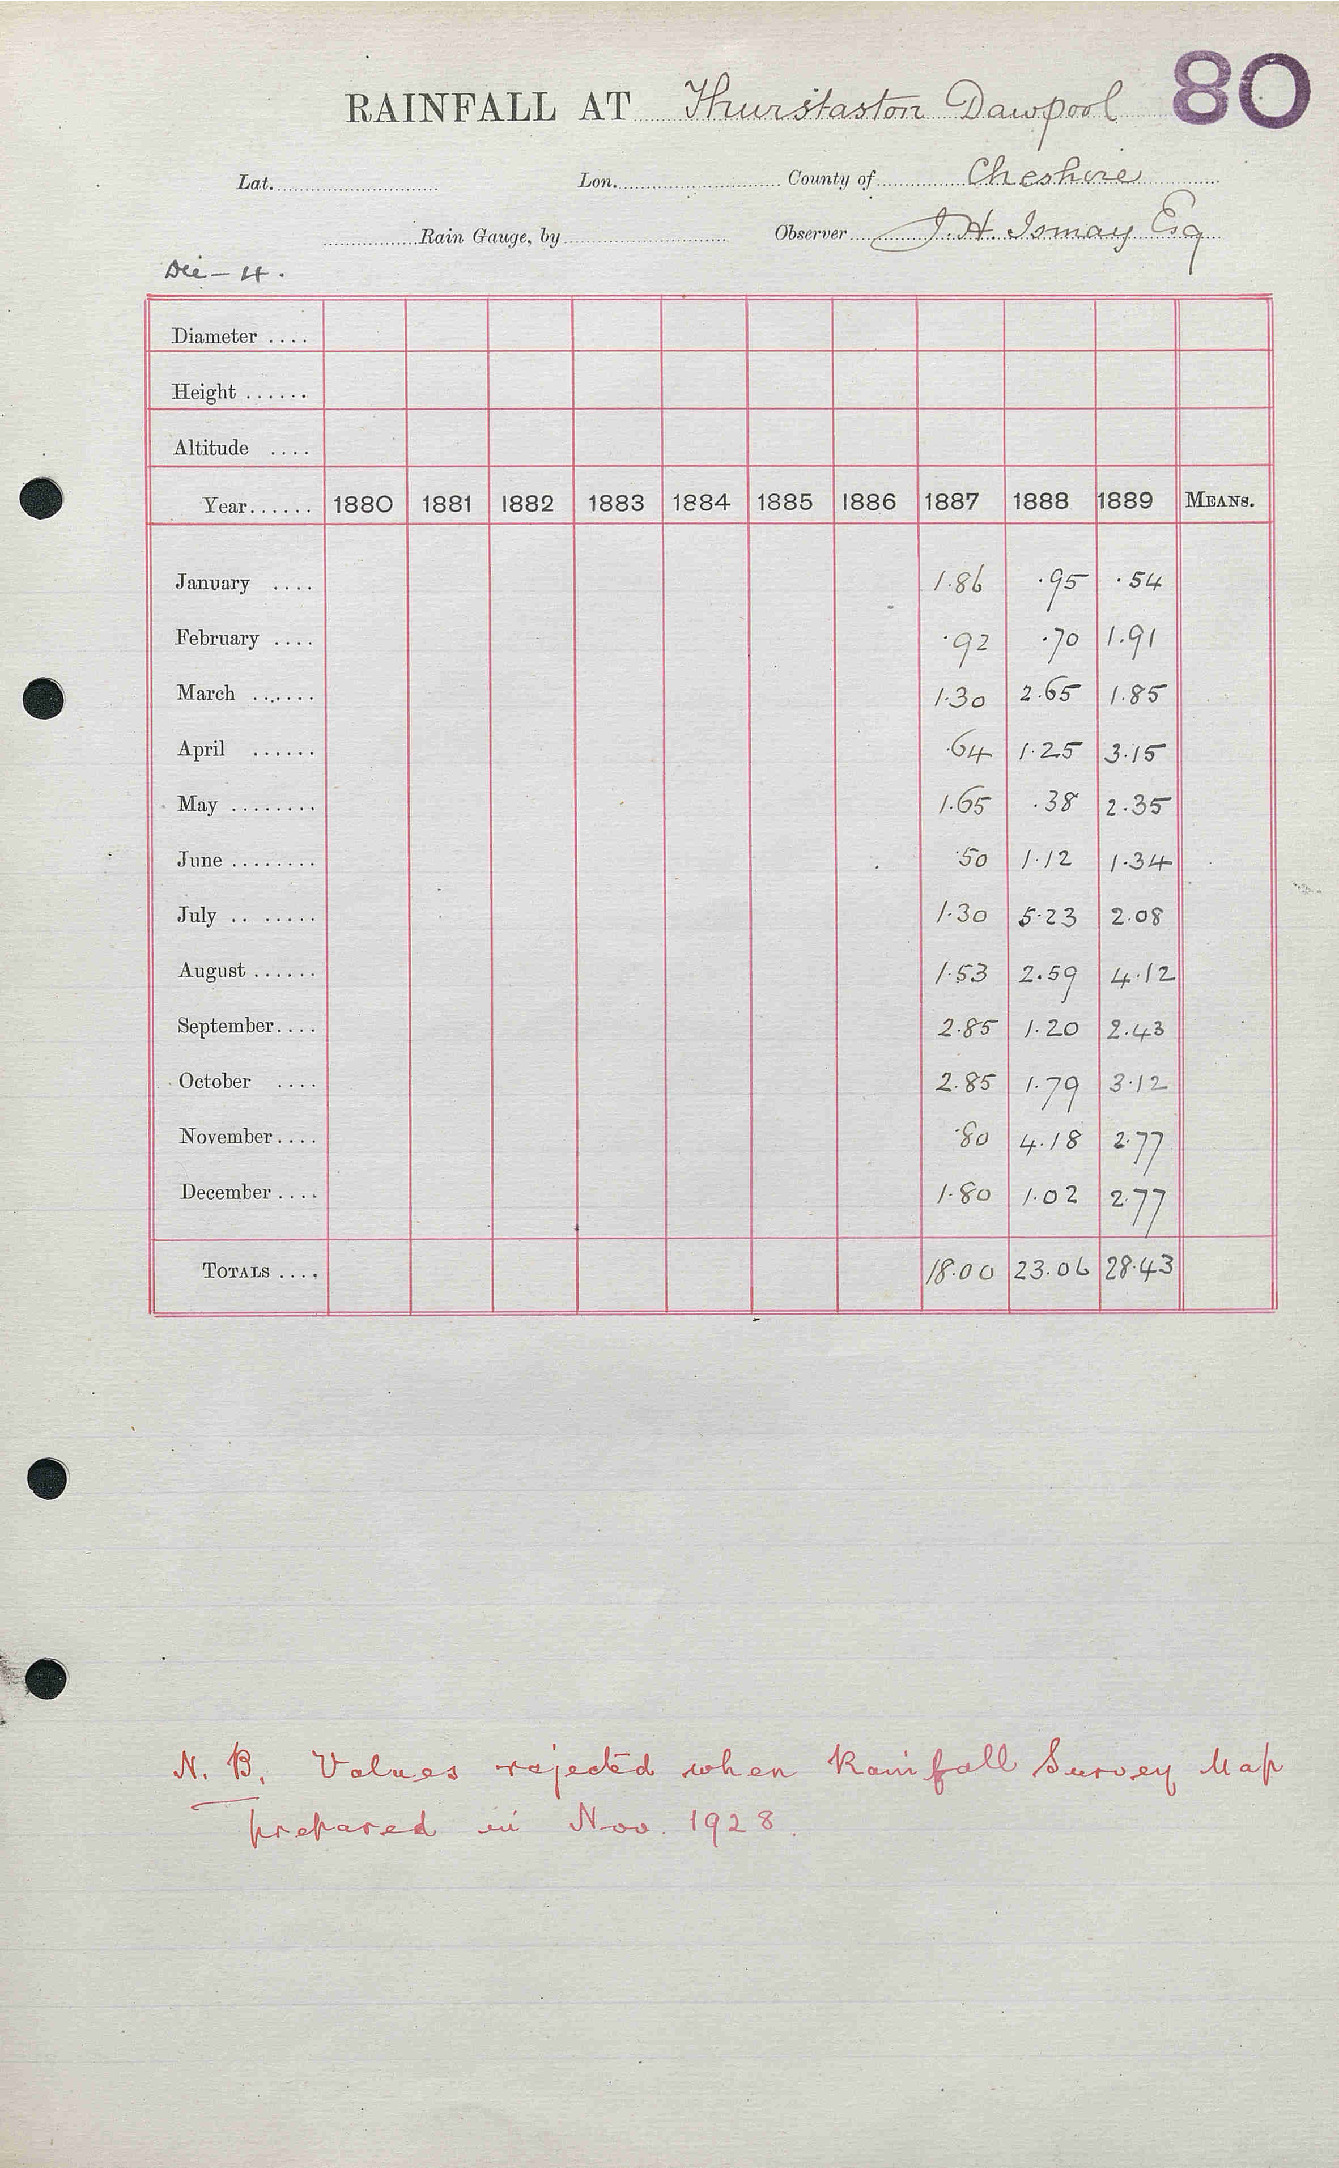 80
RAINFALL AT Thurstaston Dawpool
Lat. Lon. County of Cheshire
Rain Gauge, by Observer J. H. Ismay Esq
Div – 4.
Diameter ....
Height ......
Altitude ....
Year...... 1880 1881 1882 1883 1884 1885 1886 1887 1888 1889 MEANS.
January .... 1.86 .95 .54
February .... .92 .70 1.91
March ...... 1.30 2.65 1.85
April ...... .64 1.25 3.15
May ........ 1.65 .38 2.35
June ........ .50 1.12 1.34
July .. ...... 1.30 5.23 2.08
August ...... 1.53 2.59 4.12
September.... 2.85 1.20 2.43
October .... 2.85 1.79 3.12
November.... .80 4.18 2.77
December .... 1.80 1.02 2.77
TOTALS .... 18.00 23.06 28.43
N. B. Values rejected when Rainfall Survey Map
prepared in Nov. 1928.